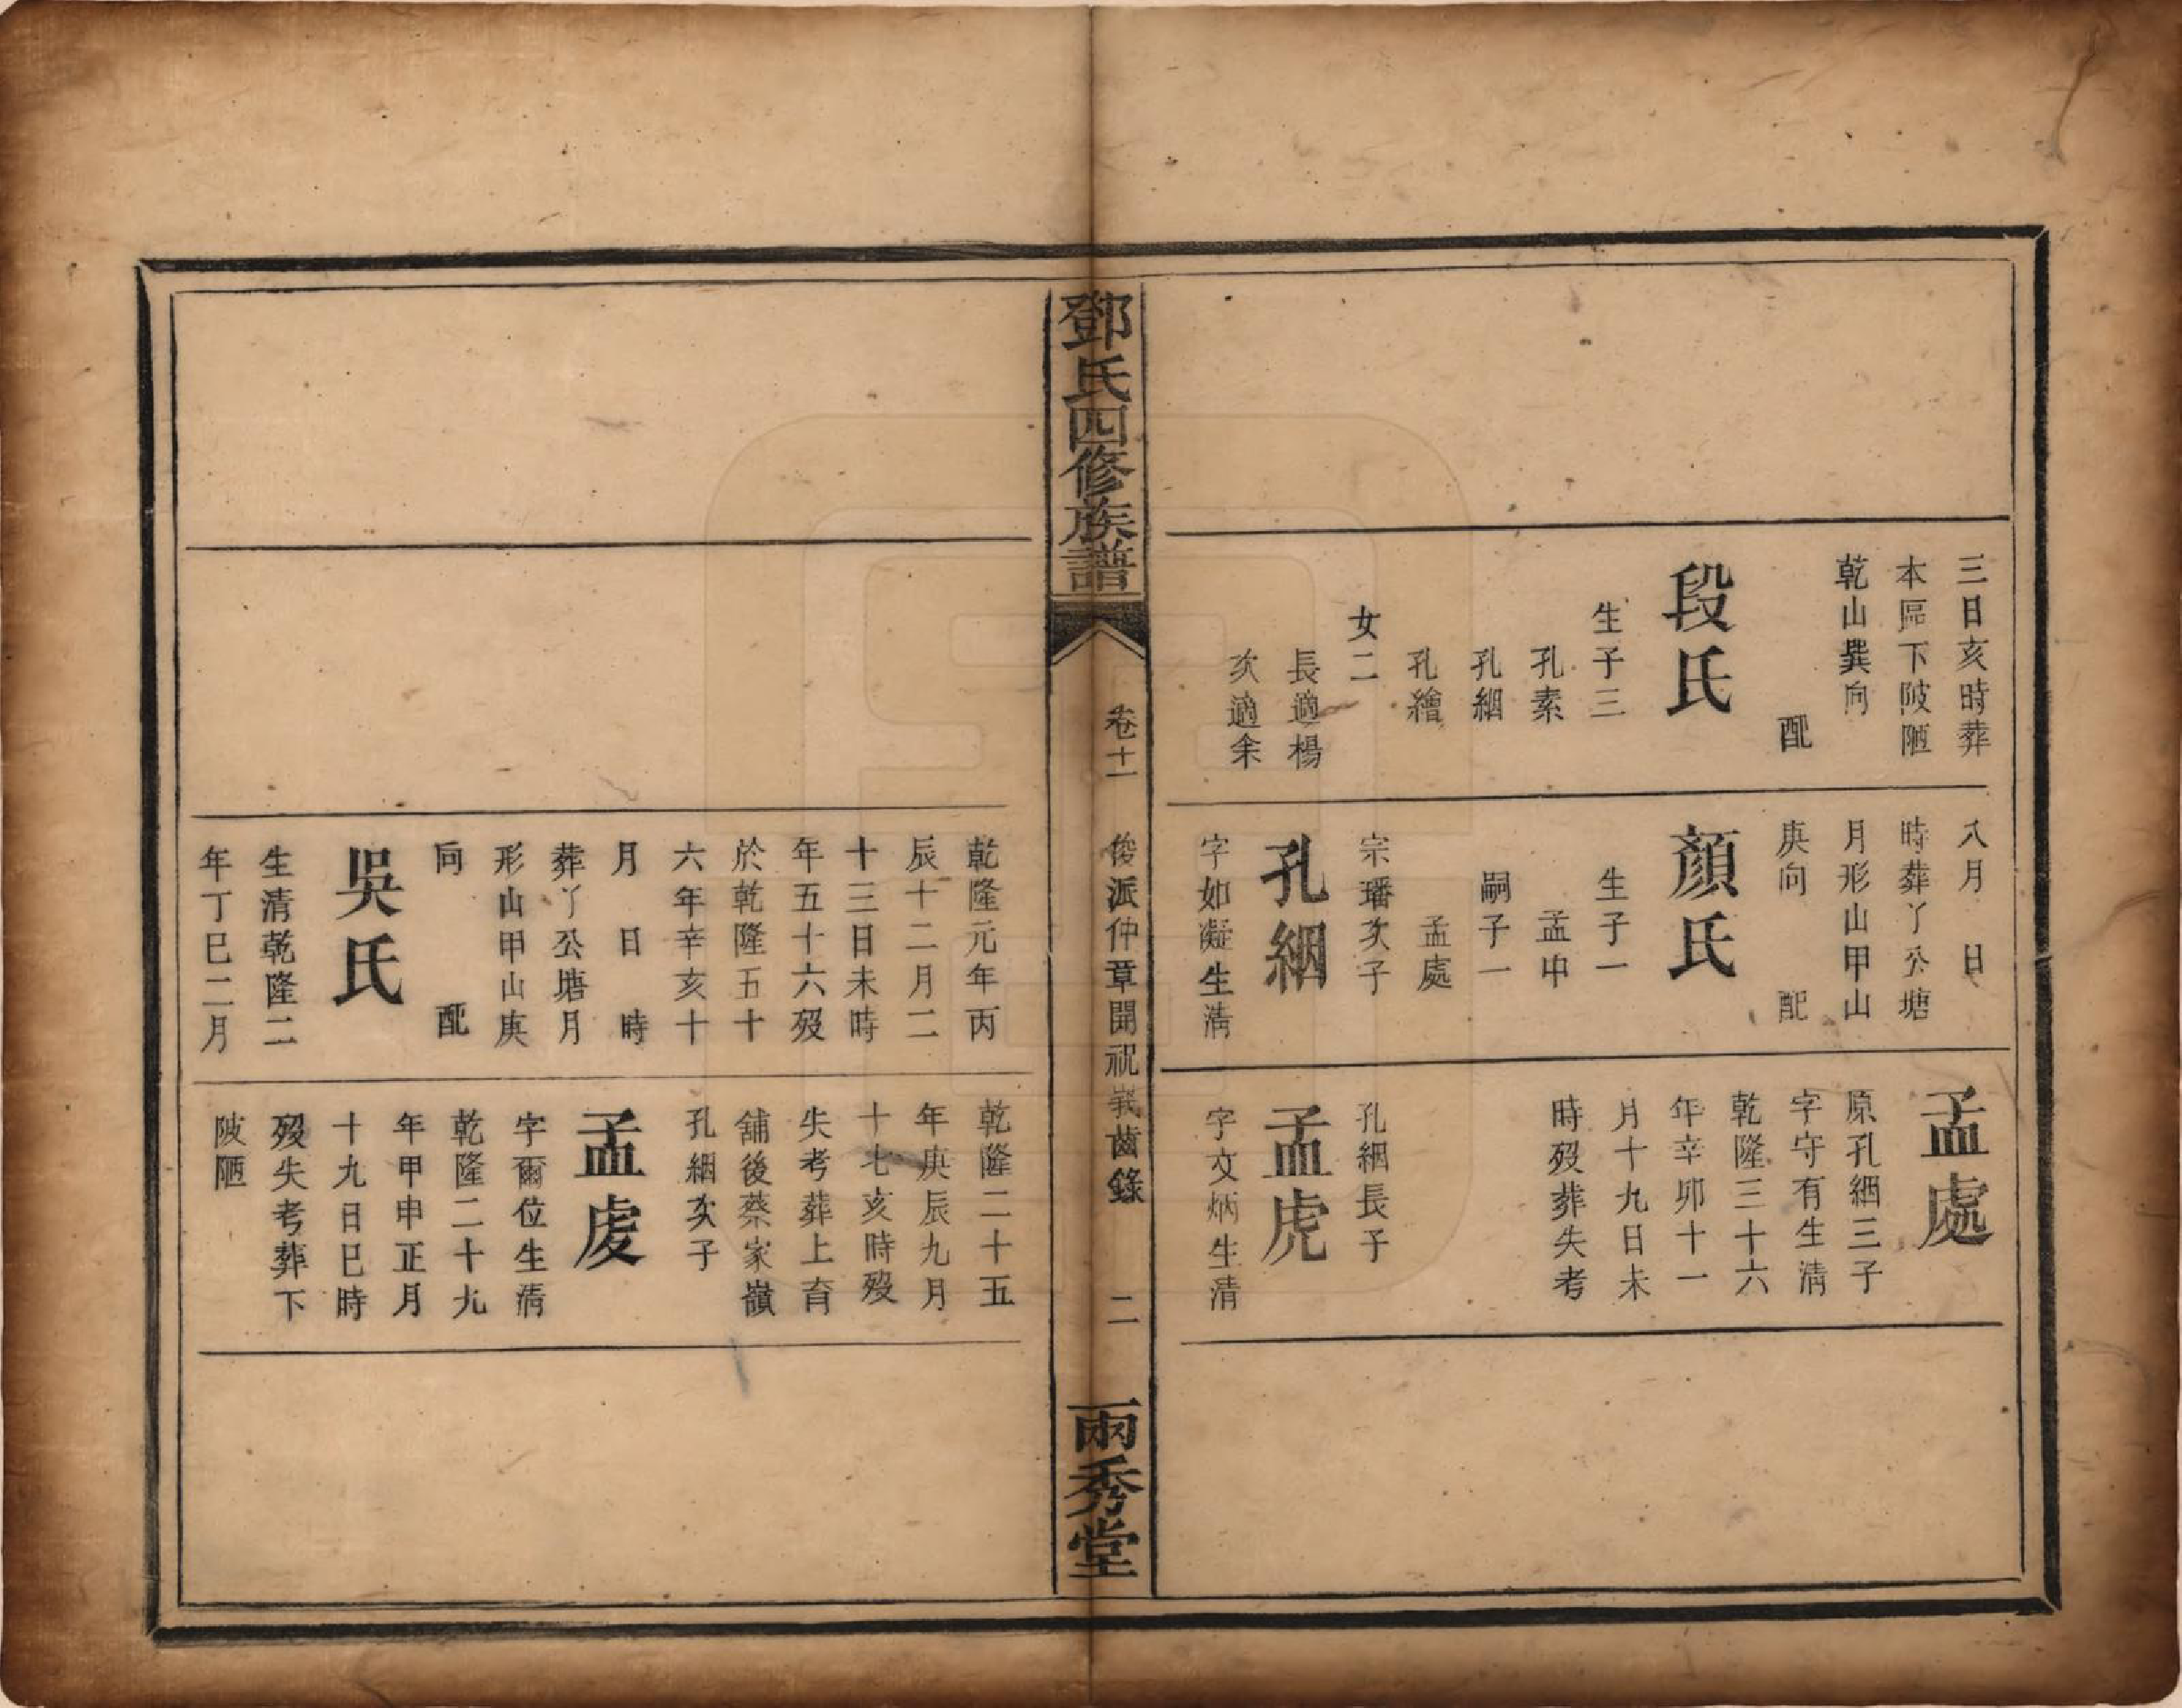 三日亥時葬
本區下陂陋
乾山巽向
配
段氏
生子三
孔素
孔絪
孔繪
女二
長適楊
次適余
八月　日
時葬丫公塘
月形山甲山
庚向　配
顏氏
生子一
孟申
嗣子一
孟處
宗璠次子
孔絪
字如凝生清
孟處
原孔絪三子
字守有生清
乾隆三十六
年辛卯十一
月十九日未
時歿葬失考
孔絪長子
孟虎
字文炳生清
鄧氏四修族譜
卷十一
俊派仲章開祝義齒錄
二
兩秀堂
乾隆元年丙
辰十二月二
十三日未時
年五十六歿
於乾隆五十
六年辛亥十
月　日　時
葬丫公塘月
形山甲山庚
向　配
吳氏
生清乾隆二
年丁巳二月
乾隆二十五
年庚辰九月
十七亥時歿
失考葬上育
舖後蔡家嶺
孔絪次子
孟虔
字爾位生清
乾隆二十九
年甲申正月
十九日巳時
歿失考葬下
陂陋